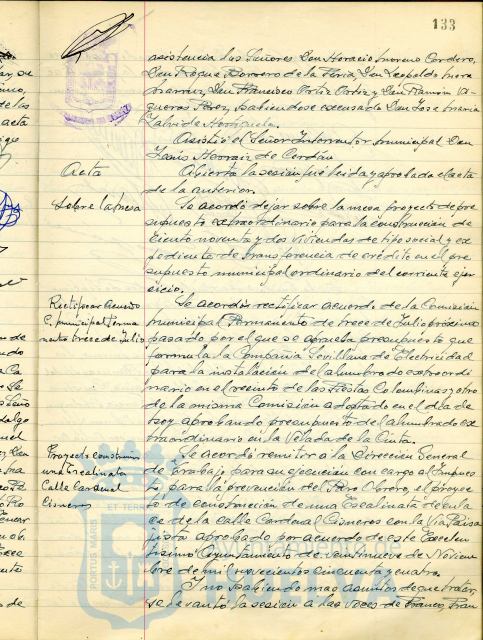 133
asistencia los Señores Don Horacio Moreno Cordero,
Don Roque Borrero de la Feria, Don Leopoldo Mora
Don Francisco Ortiz Ortiz y Don Ramón Va-
queros Perez, habiendose excusado Don Jose Maria
Asistió el Señor Interventor municipal Don
Jesús de Cerdan
Acta
Abierta la sesion fué leida y aprobada el acta
de la anterior.
Sobre la mesa
Se acordó dejar sobre la mesa proyecto de pre
supuesto extraordinario para la construcción de
ciento noventa y dos viviendas de tipo social y ex
pediente de transferencia de crédito en el pre
supuesto municipal ordinario del corriente ejer
cicio.
Rectificar acuerdo
C. municipal Perma
nente trece de Julio
Se acordó rectificar acuerdo de la Comisión
municipal Permanente de trece de Julio próximo
pasado por el que se aprueba presupuesto que
formula la Compañia Sevillana de Electricidad
para la instalación del alumbrado extraordi
nario en el recinto de las Fiestas Colombinas y otro
de la misma Comisión adoptado en el dia de
hoy aprobando presupuesto de alumbrado ex
traordinario en la Velada de la Cinta.
Proyecto
una Escalinata
Calle Cardenal
Cisneros
Se acordó remitir a la Dirección General
de Trabajo para su ejecución con cargo al
para la prevención del Paro Obrero, el proyec
to de construcción de una Escalinata de enla
ce de la calle Cardenal Cisneros con la Via Paisa
jista aprobado por acuerdo de este Excelen
tisimo Ayuntamiento de veintinueve de Noviem
bre de mil novecientos cincuenta y cuatro.
Y no habiendo mas asuntos de que tratar,
se levantó la sesión a las voces de Franco, Fran
PORTUS MARIS ET TERRAE
HUELVA